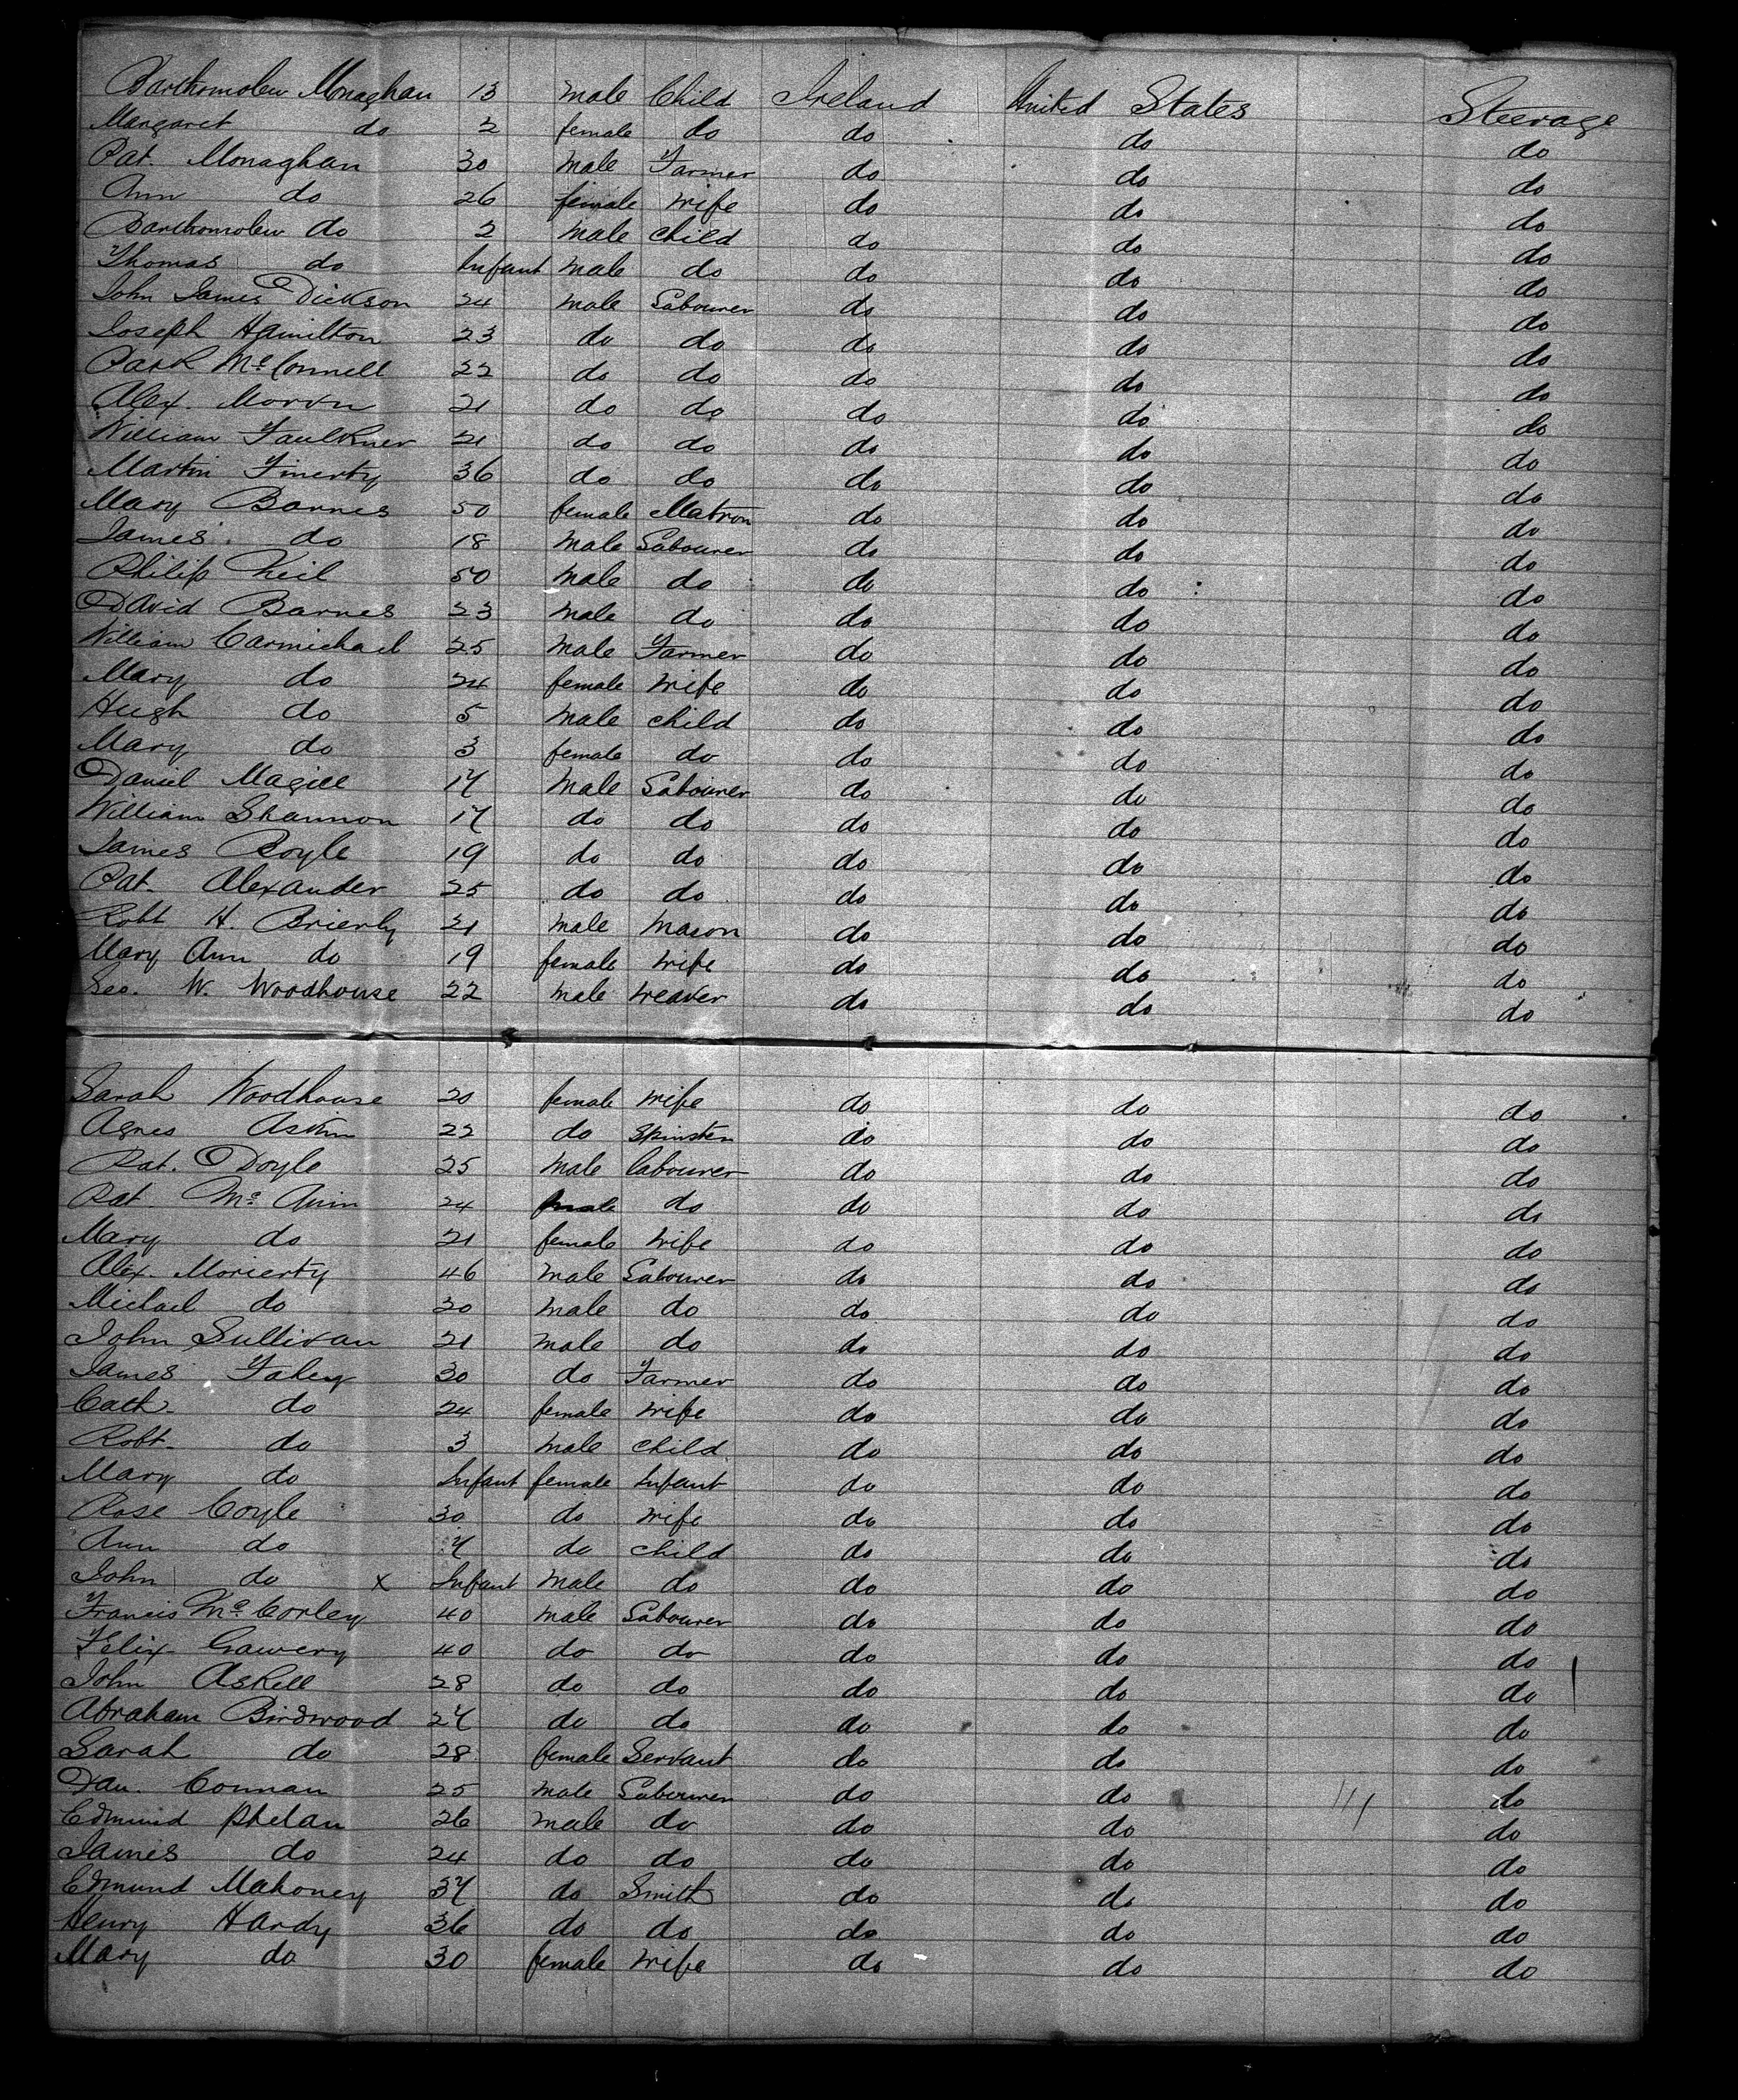 Bartholomew Monaghan 13 male Child Ireland United States Steerage
Margaret do 2 female do do do do
Pat. Monaghan 30 male Farmer do do do
Ann do 26 female wife do do do
Bartholomew do 2 male child do do do
Thomas do Infant male do do do do
John James Dickson 24 male Labourer do do do
Joseph Hamilton 23 do do do do do
Park McConnell 22 do do do do do
Alex. 21 do do do do do
William Faulkner 21 do do do do do
Martin Finerty 36 do do do do do
Mary Barnes 50 female Matron do do do
James do 18 male Labourer do do do
Philip Neil 50 male do do do do
David Barnes 23 male do do do do
William Carmichael 25 male Farmer do do do
Mary do 24 female wife do do do
Hugh do 5 male child do do do
Mary do 3 female do do do do
Daniel Magill 17 male Labourer do do do
William Shannon 17 do do do do do
James Boyle 19 do do do do do
Pat. Alexander 25 do do do do do
Robt H. Brierly 21 male mason do do do
Mary Ann do 19 female wife do do do
Geo. W. Woodhouse 22 male weaver do do do
Sarah Woodhouse 20 female wife do do do
Agnes Askin 22 do Spinster do do do
Pat. Doyle 25 male labourer do do do
Pat. Mc 24 male do do do do
Mary do 21 female wife do do do
Alex. Morierty 46 male Labourer do do do
Michael do 20 male do do do do
John Sullivan 21 male do do do do
James Fahey 30 do Farmer do do do
Cath. do 24 female wife do do do
Robt. do 3 male child do do do
Mary do Infant female Infant do do do
Rose Coyle 30 do wife do do do
Ann do 7 do child do do do
John do x Infant male do do do do
Francis McCorley 40 male Labourer do do do
Felix 40 do do do do do
John Askell 28 do do do do do
Abraham Birdwood 27 do do do do do
Sarah do 28 female Servant do do do
Dan. Connan 25 male Labourer do do do
Edmund Phelan 26 male do do do do
James do 24 do do do do do
Edmund Mahoney 37 do Smith do do do
Henry Hardy 36 do do do do do
Mary do 30 female wife do do do